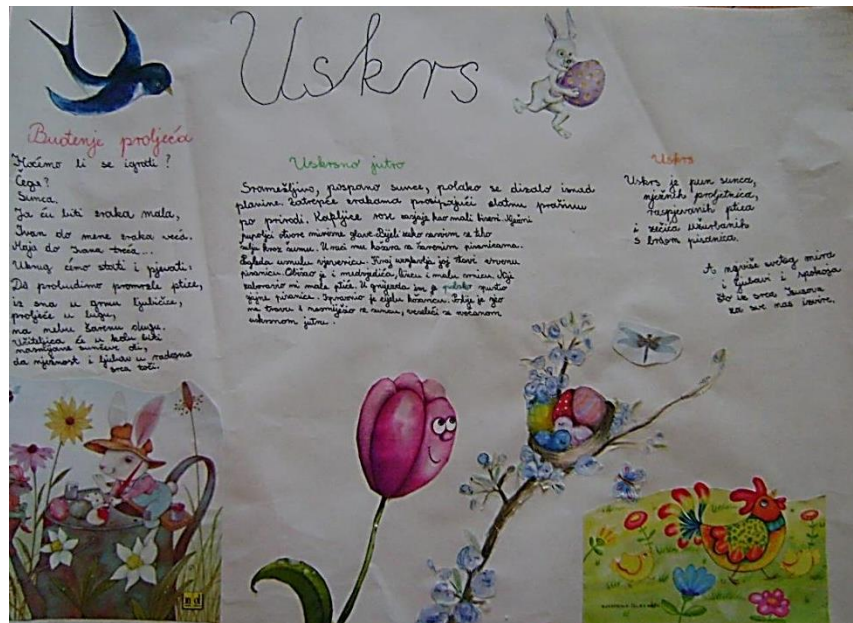 Uskrs
Buđenje proljeća
Hoćemo li se igrati?
Čega?
Sunca.
Ja ću biti zraka mala,
Ivan do mene zraka veća.
Maja do Ivana treća...
Ukrug ćemo stati i pjevati,
Da probudimo promrzle ptice,
iz sna u grmu ljubičice,
proljeće u lugu,
na nebu šarenu dugu.
Učiteljica će u kolu biti
nasmijane sunčeve oči,
da nježnost i ljubav u radosna
srca toči.
Uskrsno jutro
Sramežljivo, pospano sunce, polako se dizalo iznad
planine. Zatrepće zrakama prosipajući zlatnu prašinu
po prirodi. Kapljice rose zasjaje kao mali biseri. Nježni
pupoljci otvore mirisne glave. Bijeli zeko sasvim se tiho
šulja kroz šumu. U ruci mu košara sa šarenim pisanicama.
Ugleda usnulu vjevericu. Kraj uzglavlja joj stavi crvenu
pisanicu. Obišao je i medvjedića, lisicu i malu srnicu. Nije
zaboravio ni male ptiće. U gnijezda im je polako spustio
sjajne pisanice. Ispraznio je cijelu košaricu. Sretan je sjeo
na travu i nasmiješio se suncu, veseleći se svečanom
uskrsnom jutru.
Uskrs
Uskrs je pun sunca,
nježnih proljetnica,
raspjevanih ptica
i zečića užurbanih
s brdom pisanica.
A najviše svetog mira
i ljubavi i spokoja
što iz srca Isusova
za sve nas izvire.